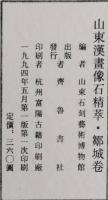 山東漢畫像石精萃·鄒城卷
編者 山東石刻藝術博物館
出版者 齊魯書社
印刷者 杭州富陽古籍印刷廠
一九九四年五月第一版第一次印刷
定價:三六〇圓